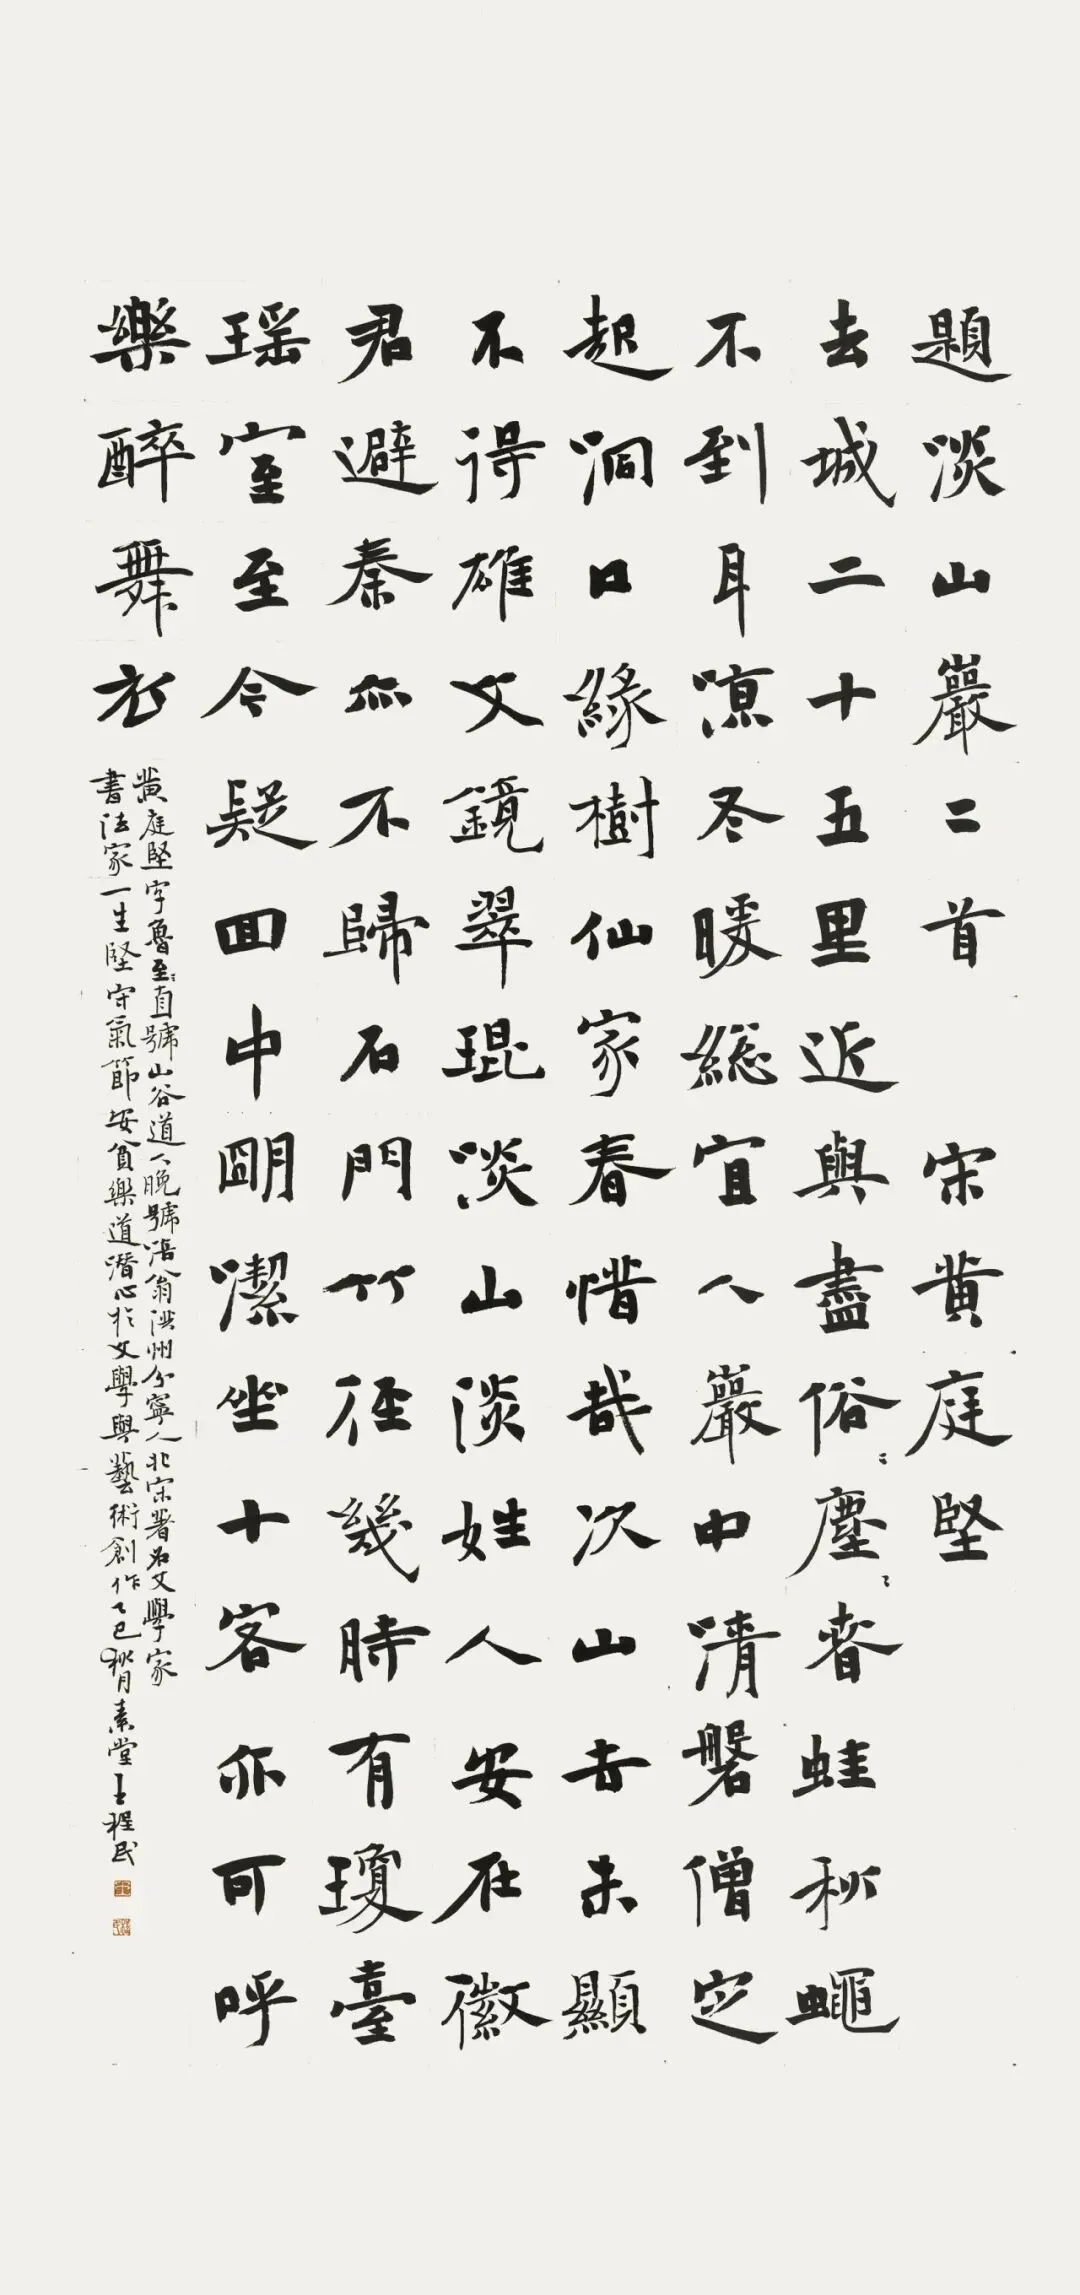 題淡山巖二首 宋黄庭堅
去城二十五里近與盡俗塵春蛙秋蠅
不到耳凉冬暖總宜人巖中清磬僧定
起洞口緣樹仙家春惜哉次山世未顯
不得雄文鏡翠琨淡山淡姓人安在徽
君避秦亦不歸石門竹徑幾時有瓊臺
瑶室至今疑回中明潔坐十客亦可呼
樂醉舞衣
黄庭堅字魯至直號山谷道人晚號涪翁洪州分寧人北宋著名文學家
書法家一生堅守氣節安貧樂道潛心於文學與藝術創作乙巳秋月素堂王程民